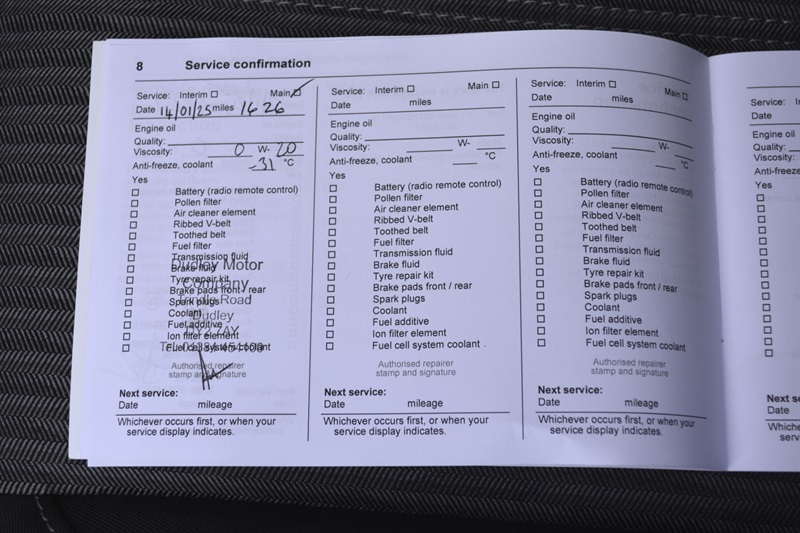 8 Service confirmation
Service: Interim Main
Date 14/01/25 miles 1626
Engine oil
Quality:
Viscosity: 0 W- 20
Anti-freeze, coolant -31 °C
Yes
Battery (radio remote control)
Pollen filter
Air cleaner element
Ribbed V-belt
Toothed belt
Fuel filter
Transmission fluid
Dudley Motor
Brake fluid
Tyre repair kit
Company
Brake pads front / rear
Spark plugs
Road
Coolant
Dudley
Fuel additive
Ion filter element
Fuel cell system coolant
Authorised repairer
stamp and signature
Next service:
Date mileage
Whichever occurs first, or when your
service display indicates.
Service: Interim Main
Date miles
Engine oil
Quality:
Viscosity: W-
Anti-freeze, coolant °C
Yes
Battery (radio remote control)
Pollen filter
Air cleaner element
Ribbed V-belt
Toothed belt
Fuel filter
Transmission fluid
Brake fluid
Tyre repair kit
Brake pads front / rear
Spark plugs
Coolant
Fuel additive
Ion filter element
Fuel cell system coolant
Authorised repairer
stamp and signature
Next service:
Date mileage
Whichever occurs first, or when your
service display indicates.
Service: Interim Main
Date miles
Engine oil
Quality:
Viscosity: W-
Anti-freeze, coolant °C
Yes
Battery (radio remote control)
Pollen filter
Air cleaner element
Ribbed V-belt
Toothed belt
Fuel filter
Transmission fluid
Brake fluid
Tyre repair kit
Brake pads front / rear
Spark plugs
Coolant
Fuel additive
Ion filter element
Fuel cell system coolant
Authorised repairer
stamp and signature
Next service:
Date mileage
Whichever occurs first, or when your
service display indicates.
Service:
Date
Engine oil
Quality:
Viscosity:
Anti-freeze
Yes
Date